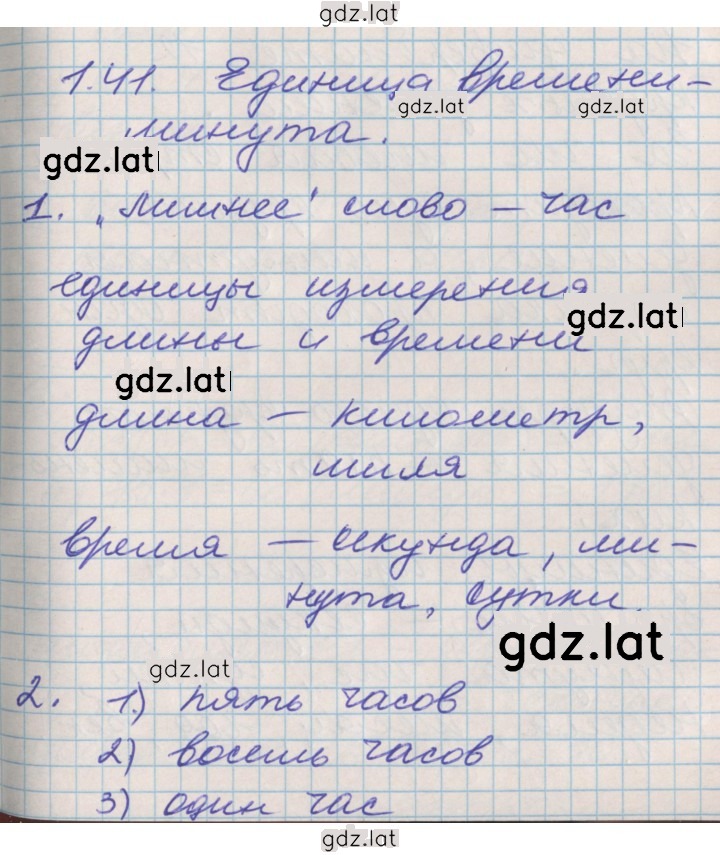 gdz.lat
1.41. Единица времени -
gdz.lat gdz.lat
минута.
gdz.lat
1. „Лишнее" слово - час
единицы измерения
gdz.lat
длины и времени
gdz.lat
длина - километр,
миля
время - секунда, ми-
нута, сутки.
gdz.lat
gdz.lat
2. 1.) пять часов
2) восемь часов
3) один час
gdz.lat